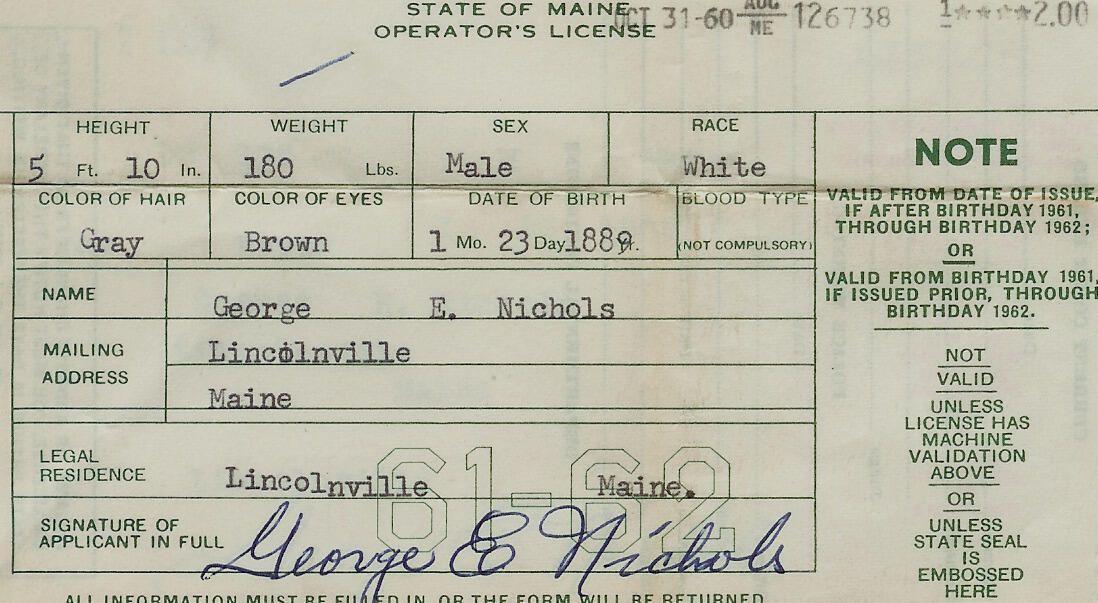 STATE OF MAINE
OPERATOR'S LICENSE
OCT 31-60 AUG ME 126738 1****2.00
HEIGHT WEIGHT SEX RACE
5 Ft. 10 In. 180 Lbs. Male White
COLOR OF HAIR COLOR OF EYES DATE OF BIRTH BLOOD TYPE
Gray Brown 1 Mo. 23 Day 1889 Yr. (NOT COMPULSORY)
NAME George E. Nichols
MAILING ADDRESS
Lincolnville
Maine
LEGAL RESIDENCE
Lincolnville Maine.
61-62
SIGNATURE OF
APPLICANT IN FULL
George E Nichols
ALL INFORMATION MUST BE FILLED IN, OR THE FORM WILL BE RETURNED
NOTE
VALID FROM DATE OF ISSUE,
IF AFTER BIRTHDAY 1961,
THROUGH BIRTHDAY 1962;
OR
VALID FROM BIRTHDAY 1961,
IF ISSUED PRIOR, THROUGH
BIRTHDAY 1962.
NOT
VALID
UNLESS
LICENSE HAS
MACHINE
VALIDATION
ABOVE
OR
UNLESS
STATE SEAL
IS
EMBOSSED
HERE